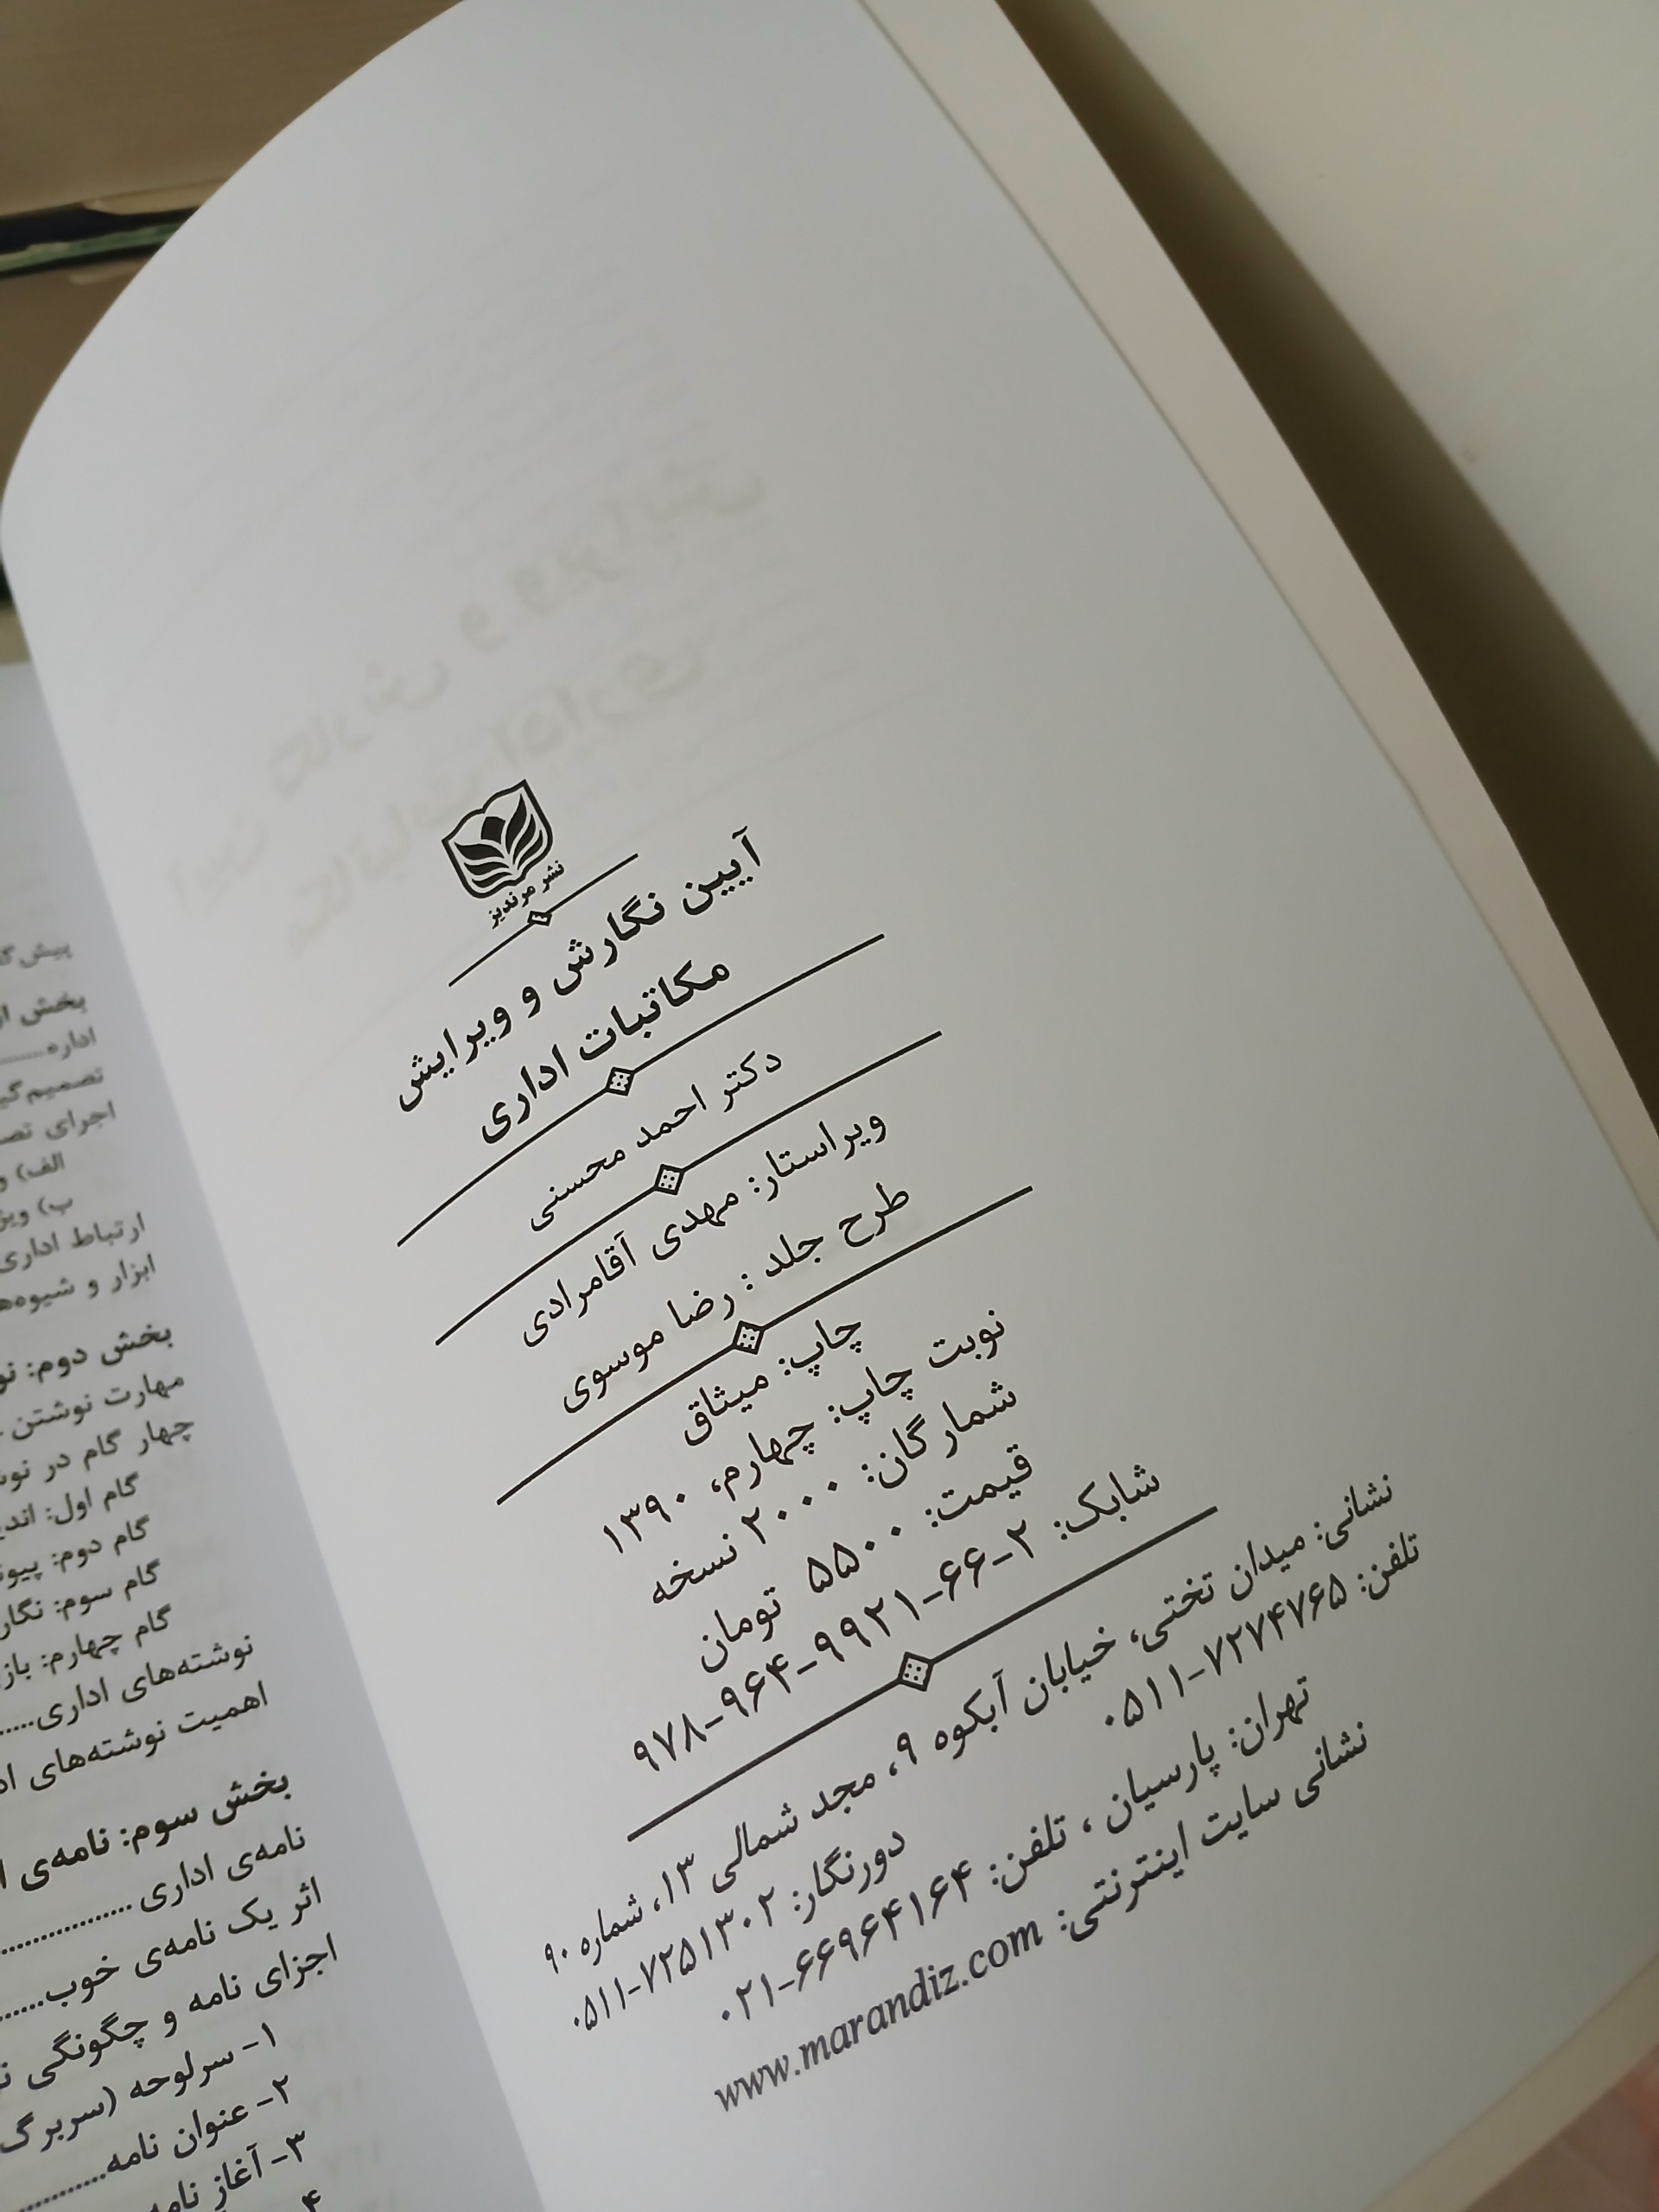 نشر مرندیز
آیین نگارش و ویرایش
مکاتبات اداری
دکتر احمد محسنی
ویراستار: مهدی آقامرادی
طرح جلد : رضا موسوی
چاپ: میثاق
نوبت چاپ: چهارم، ۱۳۹۰
شمارگان: ۲۰۰۰ نسخه
قیمت: ۵۵۰۰ تومان
شابک: ۲-۶۶-۹۹۲۱-۹۶۴-۹۷۸
نشانی: میدان تختی، خیابان آبکوه ۹، مجد شمالی ۱۳، شماره ۹۰
تلفن: ۷۲۷۴۷۶۵-۰۵۱۱ دورنگار: ۷۲۵۱۳۰۲-۰۵۱۱
تهران: پارسیان ، تلفن: ۶۶۹۶۴۱۶۴-۰۲۱
نشانی سایت اینترنتی: www.marandiz.com
بخش
اداره..........
اجرای
الف)
ب)
ارتباط اداری
ابزار و
بخش دوم:
مهارت نوشتن
چهار گام در
گام اول:
گام دوم:
گام سوم:
گام چهارم:
نوشته‌های اداری.....
اهمیت نوشته‌های
بخش سوم: نامه‌ی
نامه‌ی اداری ................
اثر یک نامه‌ی خوب.......
اجزای نامه و چگونگی
۱- سرلوحه (سربرگ
۲- عنوان نامه..........
۳- آغاز نامه
۴